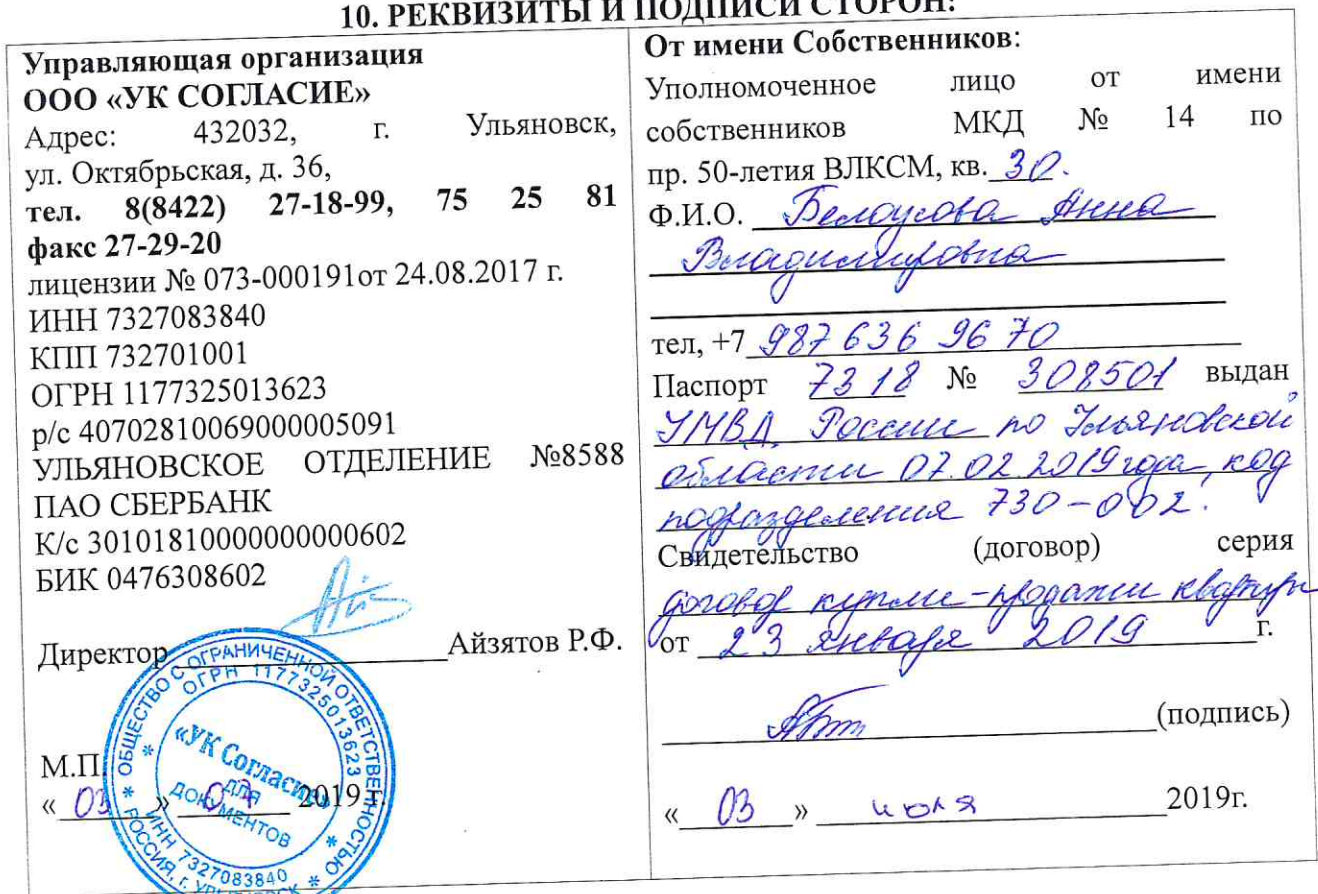 10. РЕКВИЗИТЫ И ПОДПИСИ СТОРОН:
Управляющая организация
ООО «УК СОГЛАСИЕ»
Адрес: 432032, г. Ульяновск,
ул. Октябрьская, д. 36,
тел. 8(8422) 27-18-99, 75 25 81
факс 27-29-20
лицензии № 073-000191от 24.08.2017 г.
ИНН 7327083840
КПП 732701001
ОГРН 1177325013623
р/с 40702810069000005091
УЛЬЯНОВСКОЕ ОТДЕЛЕНИЕ №8588
ПАО СБЕРБАНК
К/с 30101810000000000602
БИК 0476308602
Директор Айзятов Р.Ф.
М.П.
« 03 » 07 2019 г.
ОБЩЕСТВО С ОГРАНИЧЕННОЙ ОТВЕТСТВЕННОСТЬЮ
ОГРН 1177325013623
«УК Согласие»
ДЛЯ
ДОКУМЕНТОВ
ИНН 7327083840
РОССИЯ, г. УЛЬЯНОВСК
От имени Собственников:
Уполномоченное лицо от имени
собственников МКД № 14 по
пр. 50-летия ВЛКСМ, кв. 30.
Ф.И.О. Белоусова Анна
Владимировна
тел, +7 987 636 96 70
Паспорт 73 18 № 308501 выдан
УМВД России по Ульяновской
области 07.02.2019 года, код
подразделения 730-002.
Свидетельство (договор) серия
договор купли-продажи квартиры
от 23 января 2019 г.
(подпись)
« 03 » июля 2019г.